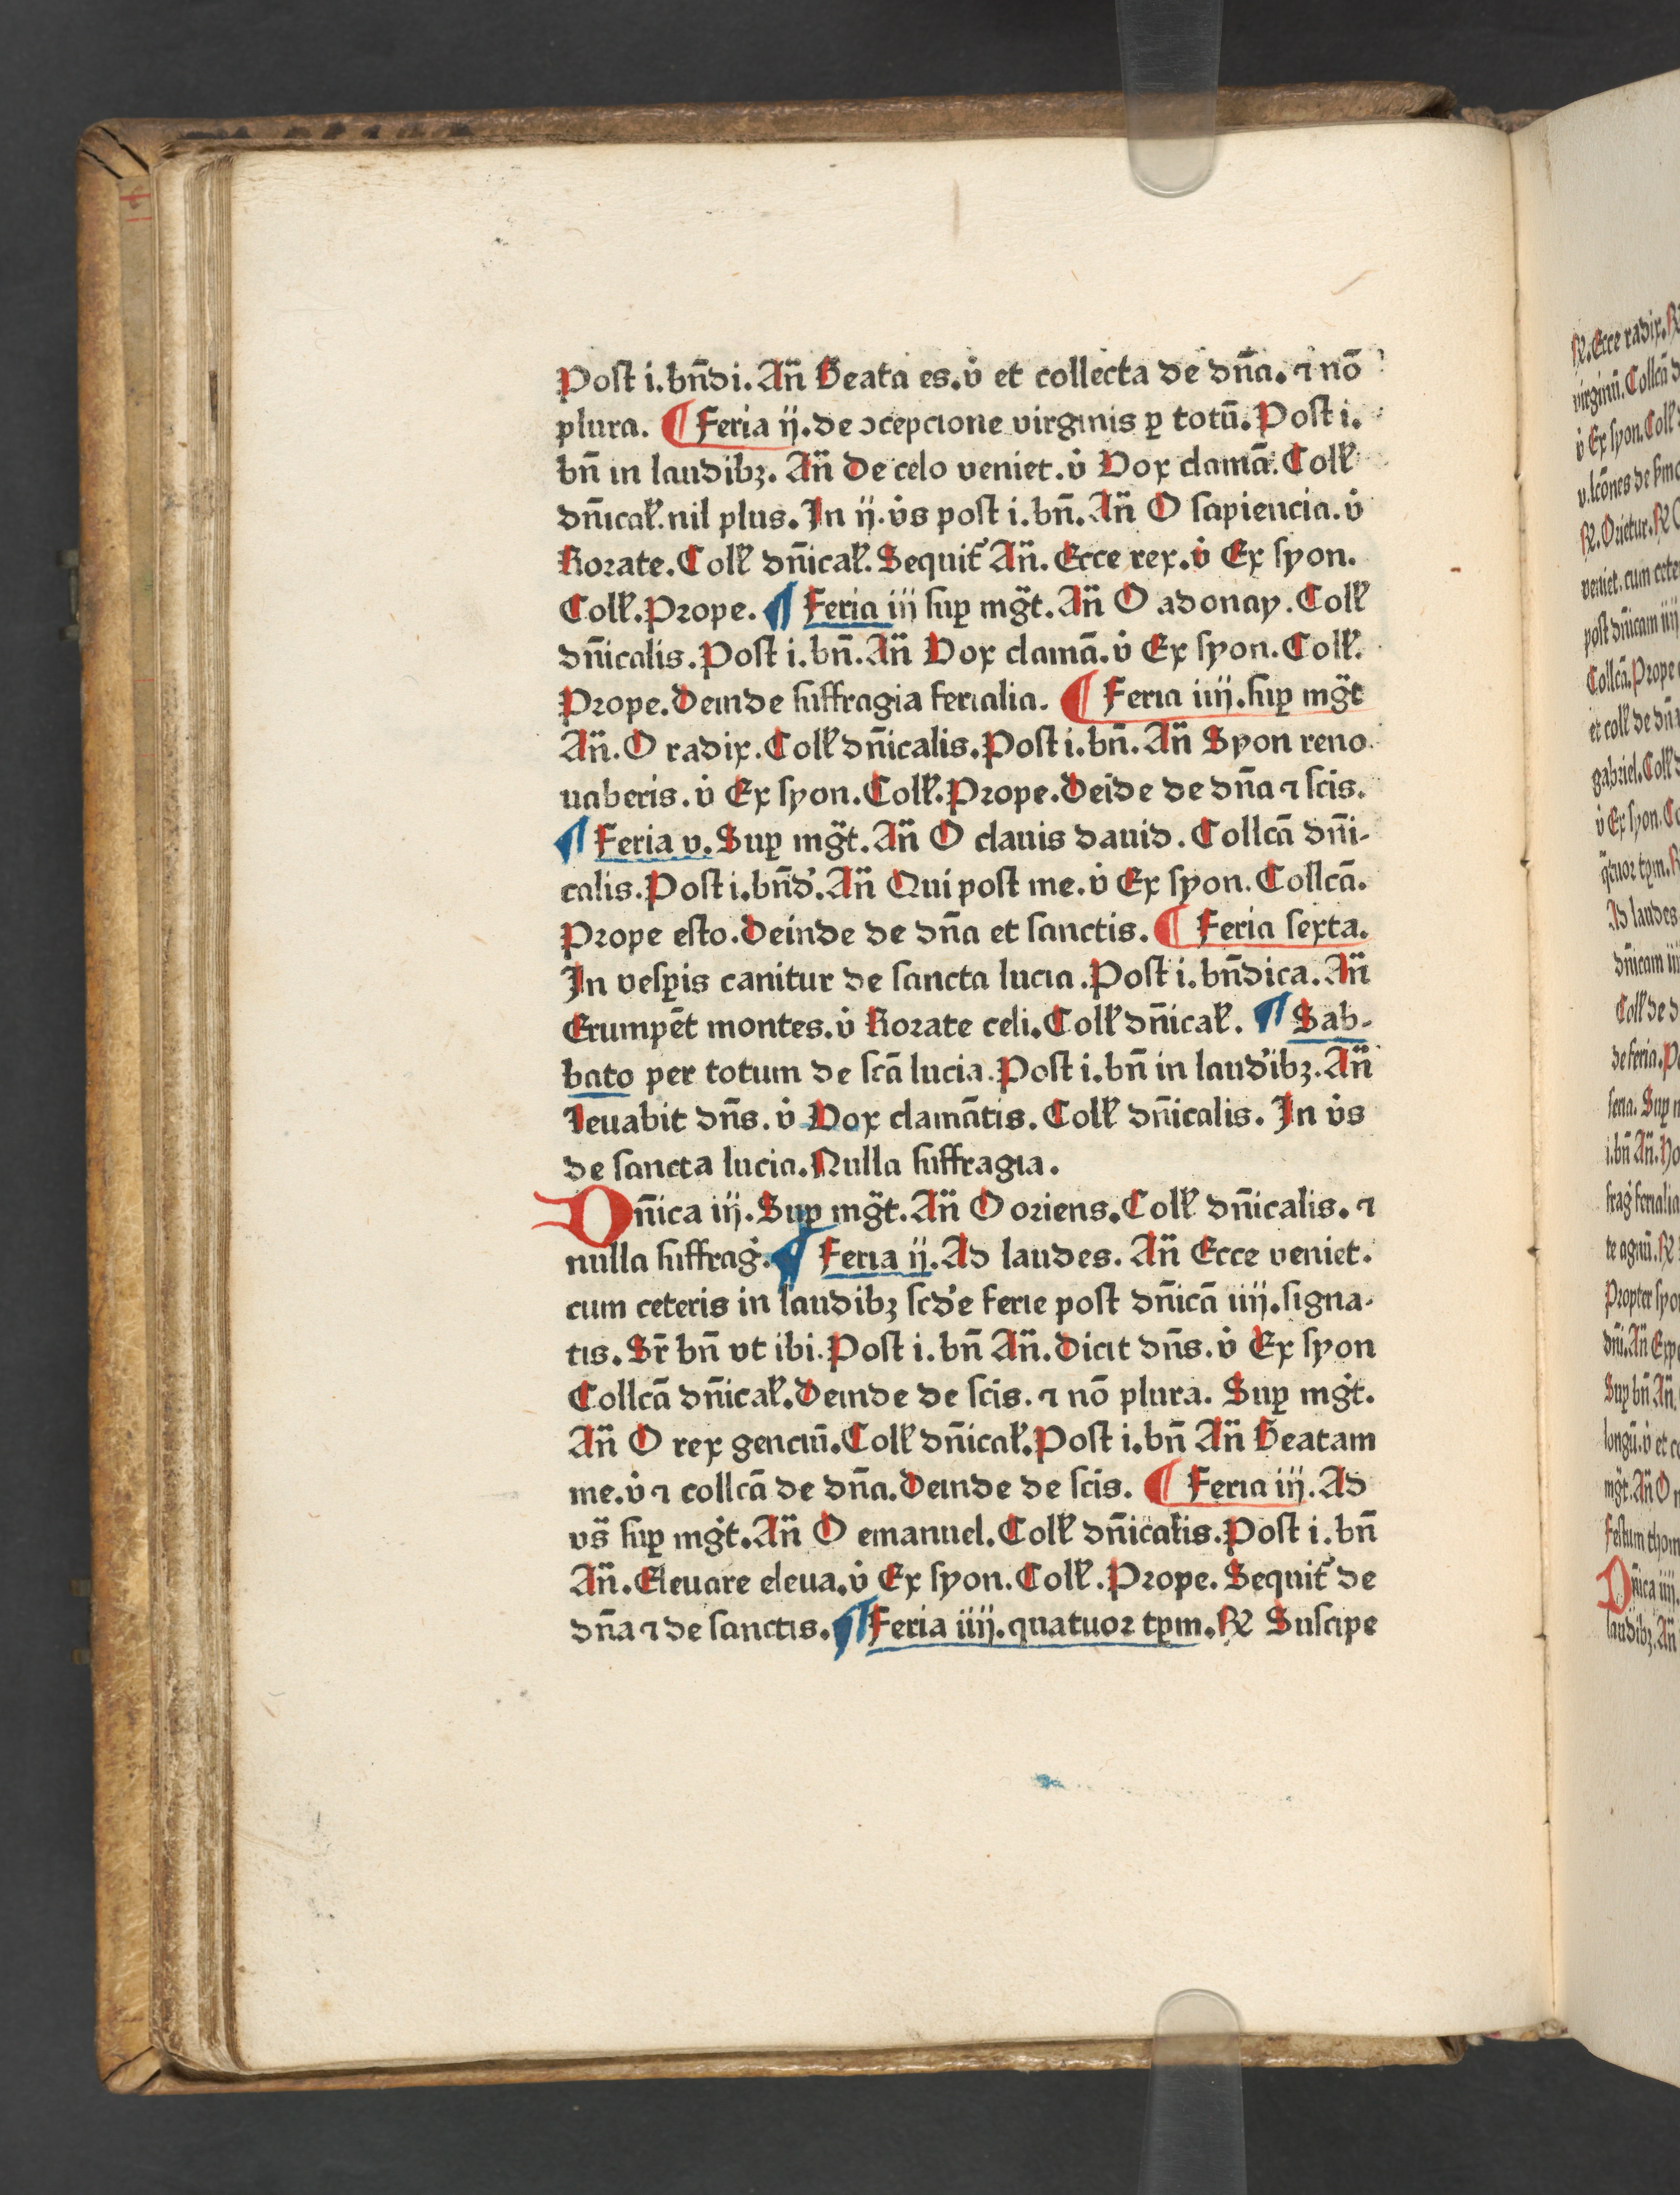 Post i. bn̄di. An̄ Beata es. v̇ et collecta de dn̄a. ⁊ nō
plura. ¶ Feria ij. de ↄcepcione virginis ꝑ totū. Post i.
bn̄ in laudibꝫ. An̄ De celo veniet. v̇ Vox clamā. Coll̄
dn̄icał. nil plus. In ij. v̇s post i. bn̄. An̄ O sapiencia. v̇
Rorate. Coll̄ dn̄icał. Sequit᷑ An̄. Ecce rex. v̇ Ex syon.
Coll̄. Prope. ¶ Feria iij suꝑ mgt̄. An̄ O adonay. Coll̄
dn̄icalis. Post i. bn̄. An̄ Vox clamā. v̇ Ex syon. Coll̄.
Prope. Deinde suffragia ferialia. ¶ Feria iiij. suꝑ mgt̄
An̄. O radix. Coll̄ dn̄icalis. Post i. bn̄. An̄ Syon reno
uaberis. v̇ Ex syon. Coll̄. Prope. Deīde de dn̄a ⁊ scis.
¶ Feria v. Suꝑ mgt̄. An̄ O clauis dauid. Collcā dn̄i-
calis. Post i. bn̄d᷑. An̄ Qui post me. v̇ Ex syon. Collcā.
Prope esto. Deinde de dn̄a et sanctis. ¶ Feria sexta.
In vesꝑis canitur de sancta lucia. Post i. bn̄dica. An̄
Erumpēt montes. v̇ Rorate celi. Coll̄ dn̄icał. ¶ Sab-
bato per totum de scā lucia. Post i. bn̄ in laud᷑ibꝫ. An̄
Leuabit dn̄s. v̇ Vox clamātis. Coll̄ dn̄icalis. In v̇s
de sancta lucia. Nulla suffragia.
Dn̄ica iij. Suꝑ mgt̄. An̄ O oriens. Coll̄ dn̄icalis. ⁊
nulla suffraġ. ¶ Feria ij. Ad laudes. An̄ Ecce veniet.
cum ceteris in laudibꝫ scd᷑e ferie post dn̄icā iiij. signa-
tis. Sr̄ bn̄ vt ibi. Post i. bn̄ An̄. Dicit dn̄s. v̇ Ex syon
Collcā dn̄icał. Deinde de scis. ⁊ nō plura. Suꝑ mgt̄.
An̄ O rex genciū. Coll̄ dn̄icał. Post i. bn̄ An̄ Beatam
me. v̇ ⁊ collcā de dn̄a. Deinde de scis. ¶ Feria iij. Ad
vs̄ suꝑ mgt̄. An̄ O emanuel. Coll̄ dn̄icalis. Post i. bn̄
An̄. Eleuare eleua. v̇ Ex syon. Coll̄. Prope. Sequit᷑ de
dn̄a ⁊ de sanctis. ¶ Feria iiij. quatuor tꝑm. ℟ Suscipe